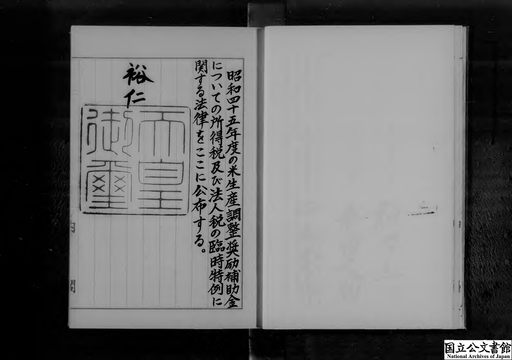 昭和四十五年度の米生産調整奨励補助金
についての所得税及び法人税の臨時特例に
関する法律をここに公布する。
裕仁
天皇
御璽
国立公文書館
National Archives of Japan